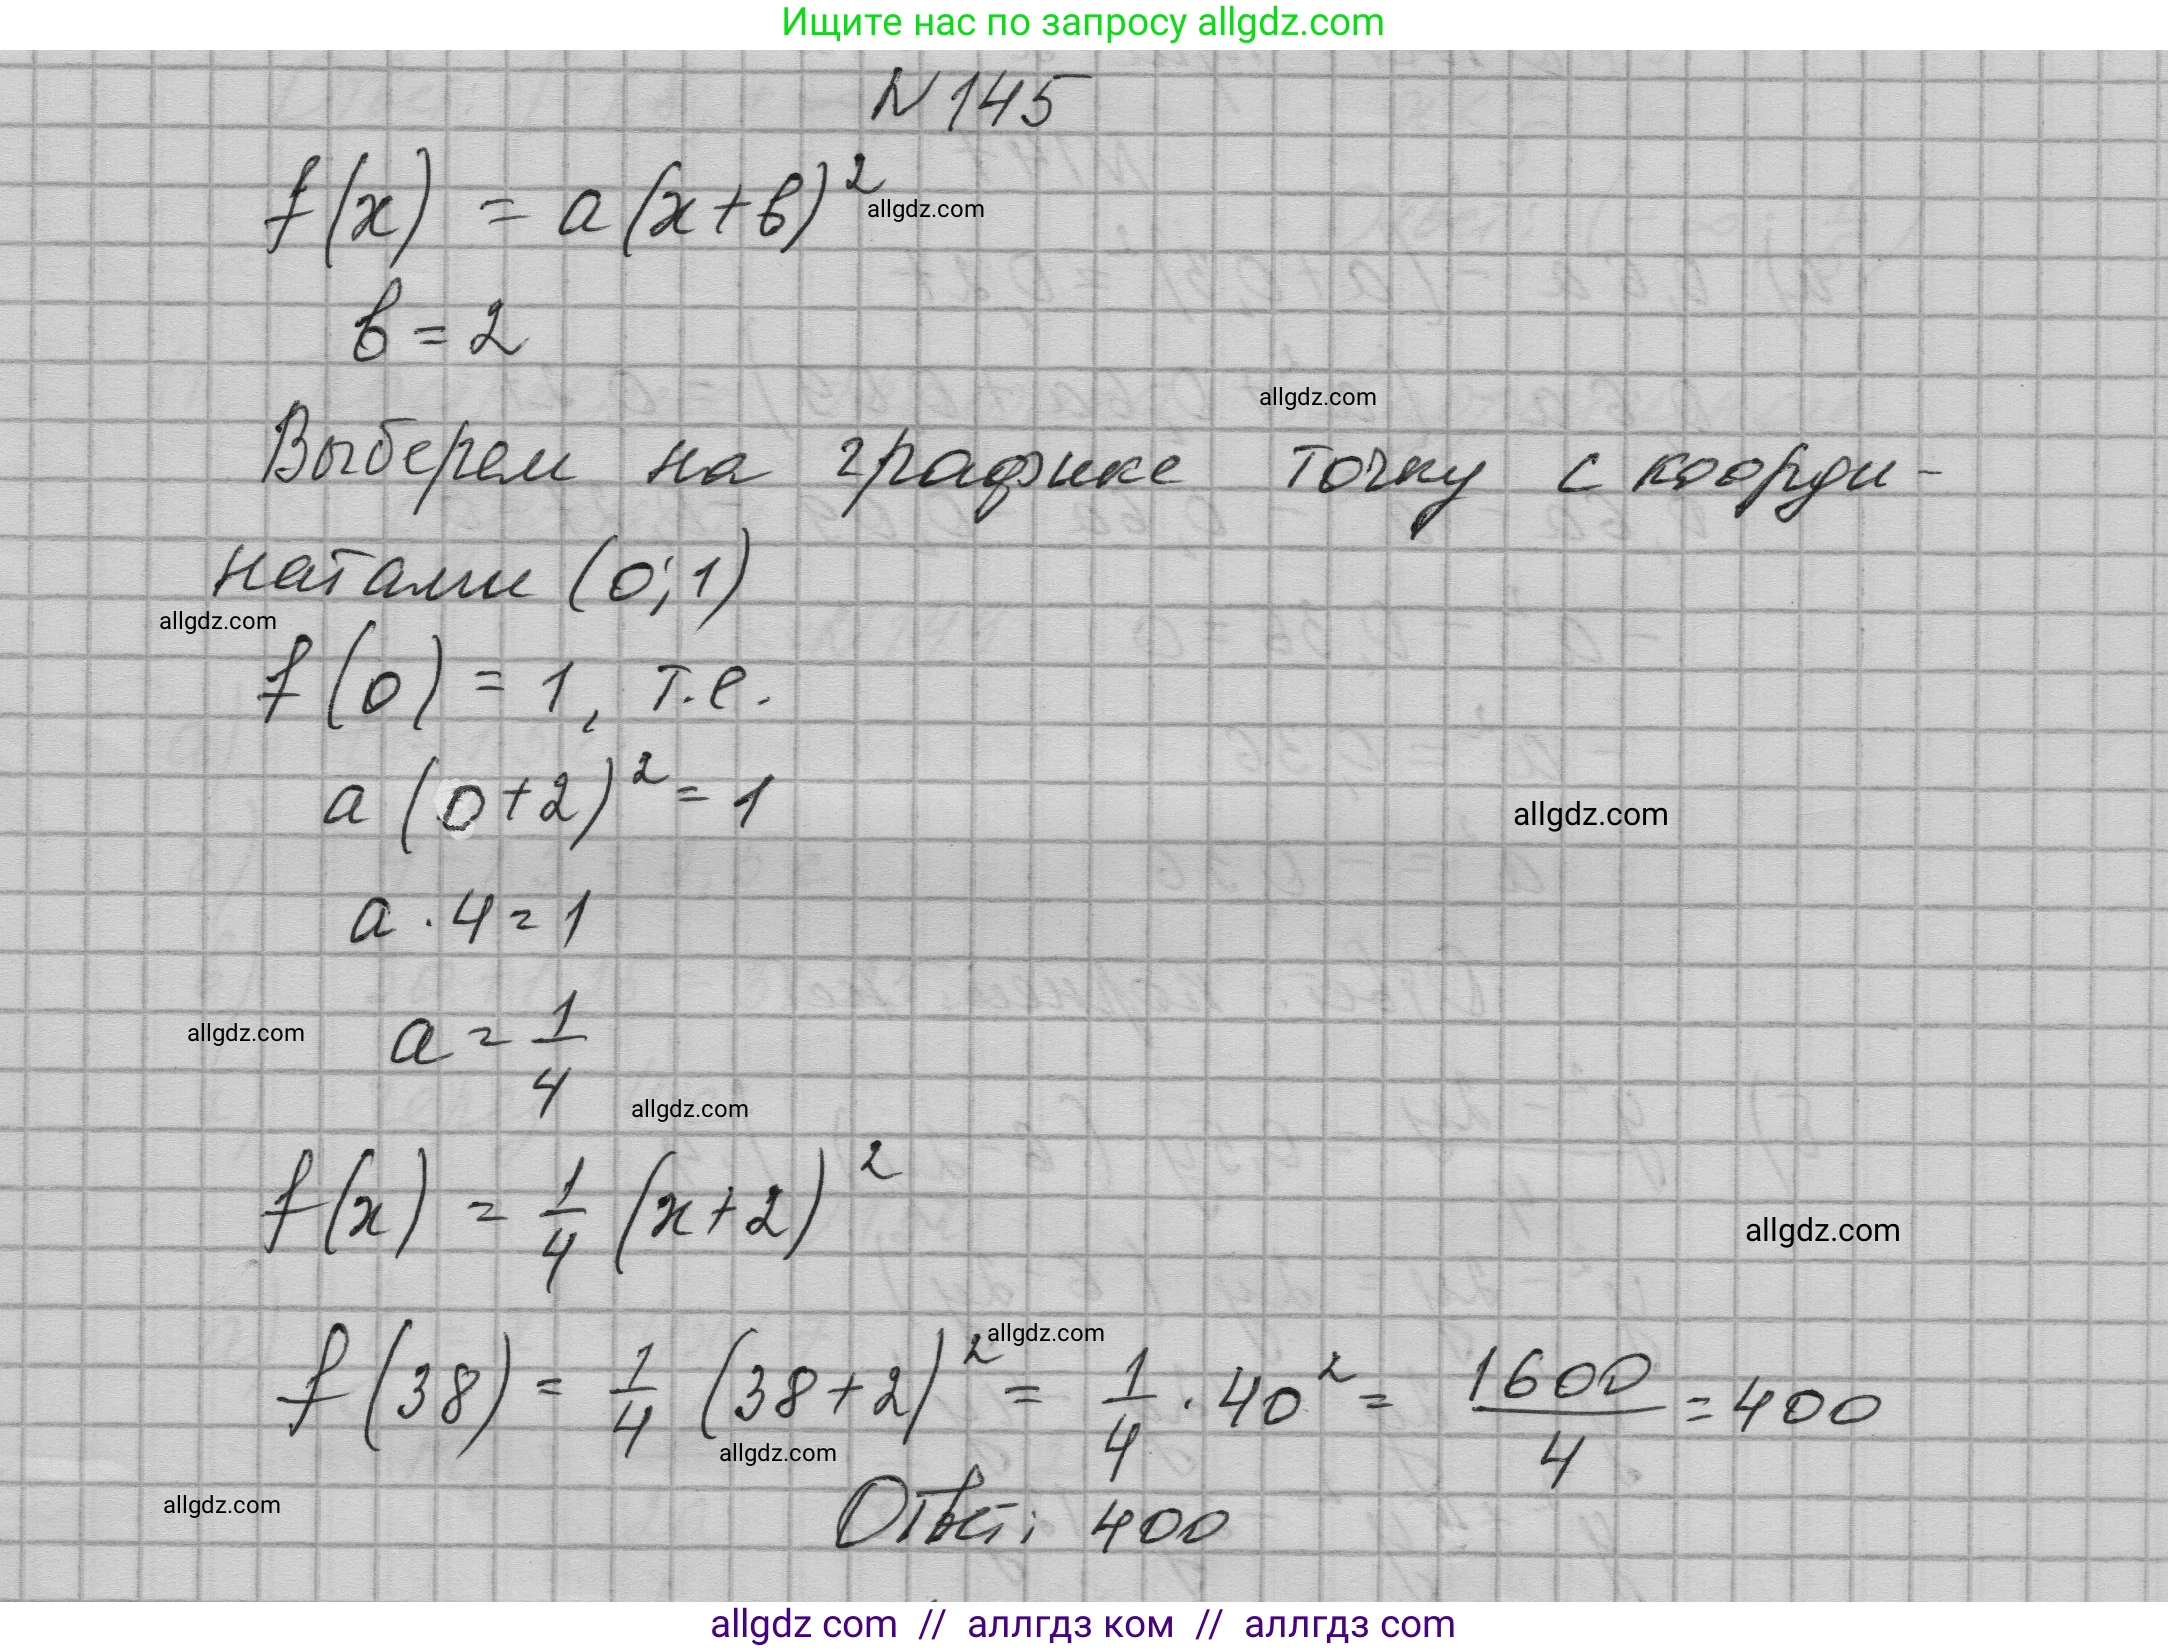 Ищите нас по запросу allgdz.com
N 145
f(x) = a(x+в)²
allgdz.com
в = 2
allgdz.com
Выберем на графике точку с коорди-
натами (0; 1)
allgdz.com
f(0) = 1, т.е.
a(0+2)² = 1
allgdz.com
a · 4 = 1
allgdz.com
a = 1/4
allgdz.com
f(x) = 1/4 (x+2)²
allgdz.com
allgdz.com
f(38) = 1/4 (38+2)² = 1/4 · 40² = 1600/4 = 400
allgdz.com
allgdz.com
Ответ: 400
allgdz com // аллгдз ком // аллгдз com